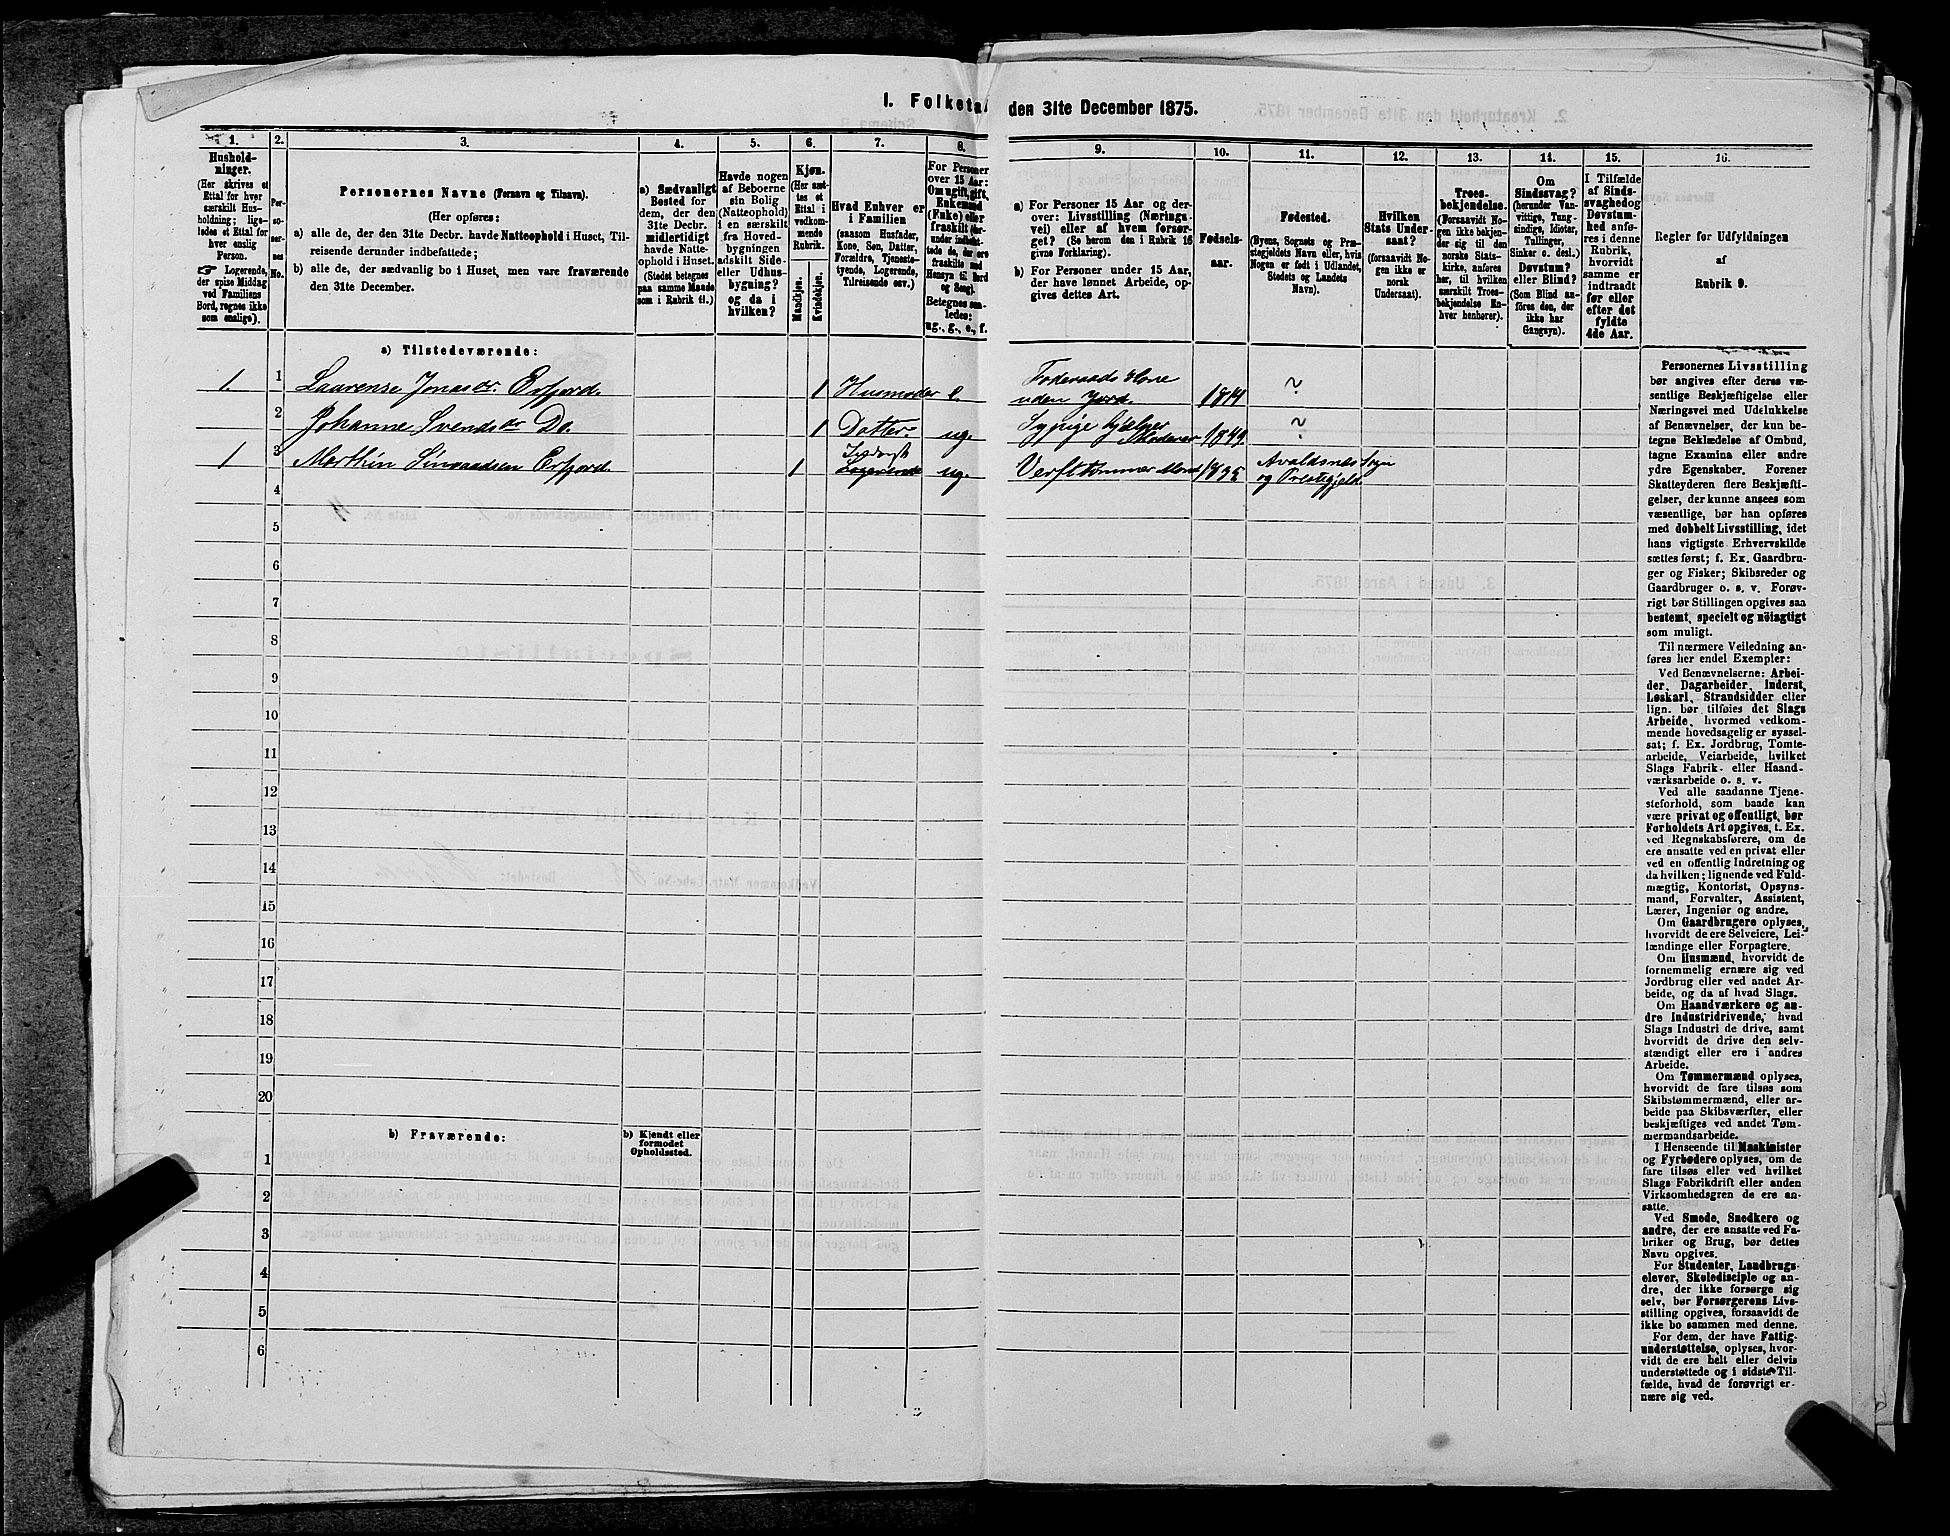 I. Folketal den 31te December 1875.
1.
Hushold-
ninger.
(Her skrives et
Ettal for hver
særskilt Hus-
holdning; lige-
ledes et Ettal for
hver enslig
Person.
Logerende,
der spise Middag
ved Familiens
Bord, regnes ikke
som enslige).
2.
Per-
so-
ner-
nes
No.
3.
Personernes Navne (Fornavn og Tilnavn).
(Her opføres:
a) alle de, der den 31te Decbr. havde Natteophold i Huset, Til-
reisende derunder indbefattede;
b) alle de, der sædvanlig bo i Huset, men vare fraværende
den 31te December.
4.
a) Sædvanligt
Bosted for
dem, der den
31te Decbr.
midlertidigt
havde Natte-
ophold i Huset.
(Stedet betegnes
paa samme Maade
som i Rubrik 11.)
5.
Havde nogen
af Beboerne
sin Bolig
(Natteophold)
i en særskilt
fra Hoved-
bygningen
adskilt Side-
eller Udhus-
bygning?
og da i
hvilken?
6.
Kjøn.
(Her sæt-
tes et
Ettal i
vedkom-
mende
Rubrik.
Mandkjøn.
Kvindekjøn.
7.
Hvad Enhver er
i Familien
(saasom Husfader,
Kone, Søn, Datter,
Forældre, Tjeneste-
tyende, Logerende,
Tilreisende osv.).
8.
For Personer
over 15 Aar:
Om ugift, gift,
Enkemand
(Enke) eller
fraskilt
Betegnes saa-
ledes:
ug., g., e., f.
9.
a) For Personer 15 Aar og der-
over: Livsstilling (Nærings-
vei) eller af hvem forsør-
get? (Se herom den i Rubrik 16
givne Forklaring).
b) For Personer under 15 Aar,
der have lønnet Arbeide, op-
gives dettes Art.
10.
Fødsels-
aar.
11.
Fødested.
(Byens, Sognets og Præ-
stegjeldets Navn eller, hvis
Nogen er født i Udlandet,
Stedets og Landets
Navn).
12.
Hvilken
Stats Under-
saat?
(forsaavidt No-
gen ikke er
norsk
Undersaat).
13.
Troes-
bekjendelse.
(Forsaavidt No-
gen ikke bekjen-
der sig til den
norske Stats-
kirke, anføres
her, til hvilken
særskilt Troes-
bekjendelse En-
hver henhører).
14.
Om
Sindssvag?
(herunder Van-
vittige, Tung-
sindige, Idioter,
Tullinger,
Sinker o. desl.)
Døvstum?
eller Blind?
(Som Blind an-
føres den, der
ikke har
Gangsyn).
15.
I Tilfælde
af Sinds-
svaghed og
Døvstum-
hed anfø-
res i denne
Rubrik,
hvorvidt
samme er
indtraadt
før eller
efter det
fyldte
4de Aar.
16.
Regler for Udfyldningen
af
Rubrik 9.
a) Tilstedeværende:
1. 1 Laurense Jonasdr. Erfjord. 1 Husmoder e. Foderaads Kone
uden Jord. 1814 ~
2 Johanne Svendsdr Do. 1 Datter ug. Sypige hjælper
Moderen 1849 ~
1 3 Marthin Simonsen Erfjord. 1 Logerende ug. Verfttømmer Mand 1835 Avaldsnes Sogn
og Prestegjeld.
4
5
6
7
8
9
10
11
12
13
14
15
16
17
18
19
20
b) Fraværende:
b) Kjendt eller
formodet
Opholdssted.
1
2
3
4
5
6
Personernes Livsstilling
bør angives efter deres væ-
sentlige Beskjæftigelse eller
Næringsvei med Udelukkelse
af Benævnelser, der kun be-
tegne Beklædelse af Ombud,
tagne Examina eller andre
ydre Egenskaber. Forener
Skatteyderen flere Beskjæfti-
gelser, der kunne ansees som
væsentlige, bør han opføres
med dobbelt Livsstilling, idet
hans vigtigste Erhvervskilde
sættes først; f. Ex. Gaardbru-
ger og Fisker; Skibsreder og
Gaardbruger o. s. v. Forøv-
rigt bør Stillingen opgives saa
bestemt, specielt og nöiagtigt
som muligt.
Til nærmere Veiledning an-
føres her endel Exempler:
Ved Benævnelserne: Arbei-
der, Dagarbeider, Inderst,
Løskarl, Strandsidder eller
lign. bør tilføies det Slags
Arbeide, hvormed vedkom-
mende hovedsagelig er syssel-
sat; f. Ex. Jordbrug, Tomte-
arbeide, Veiarbeide, hvilket
Slags Fabrik- eller Haand-
værksarbeide o. s. v.
Ved alle saadanne Tjene-
steforhold, som baade kan
være privat og offentligt, bør
Forholdets Art opgives, t. Ex.
ved Regnskabsførere, om de
ere ansatte ved en privat eller
ved en offentlig Indretning og
da hvilken; lignende ved Fuld-
mægtig, Kontorist, Opsyns-
mand, Forvalter, Assistent,
Lærer, Ingeniør og andre.
Om Gaardbrugere oplyses,
hvorvidt de ere Selveiere, Lei-
lændinge eller Forpagtere.
Om Husmænd, hvorvidt de
fornemmelig ernære sig ved
Jordbrug eller ved andet Ar-
beide, og da af hvad Slags.
Om Haandværkere og an-
dre Industridrivende, hvad
Slags Industri de drive, samt
hvorvidt de drive den selv-
stændigt eller ere i andres
Arbeide.
Om Tømmermænd oplyses,
hvorvidt de fare tilsøs som
Skibstømmermænd, eller ar-
beide paa Skibsværfter, eller
beskjæftiges ved andet Tøm-
mermandsarbeide.
I Henseende til Maskinister
og Fyrbødere oplyses, om de
fare tilsøs eller ved hvilket
Slags Fabrikdrift eller anden
Virksomhedsgren de ere an-
satte.
Ved Smede, Snedkere og
andre, der ere ansatte ved Fa-
briker og Brug, bør dettes
Navn opgives.
For Studenter, Landbrugs-
elever, Skoledisciple og an-
dre, der ikke forsørge sig
selv, bør Forsørgerens Livs-
stilling opgives, forsaavidt de
ikke bo sammen med denne.
For dem, der have Fattig-
understøttelse, oplyses, hvor-
vidt de ere helt eller delvis
understøttede og i sidste Til-
fælde, hvad de forøvrigt er-
nære sig ved.